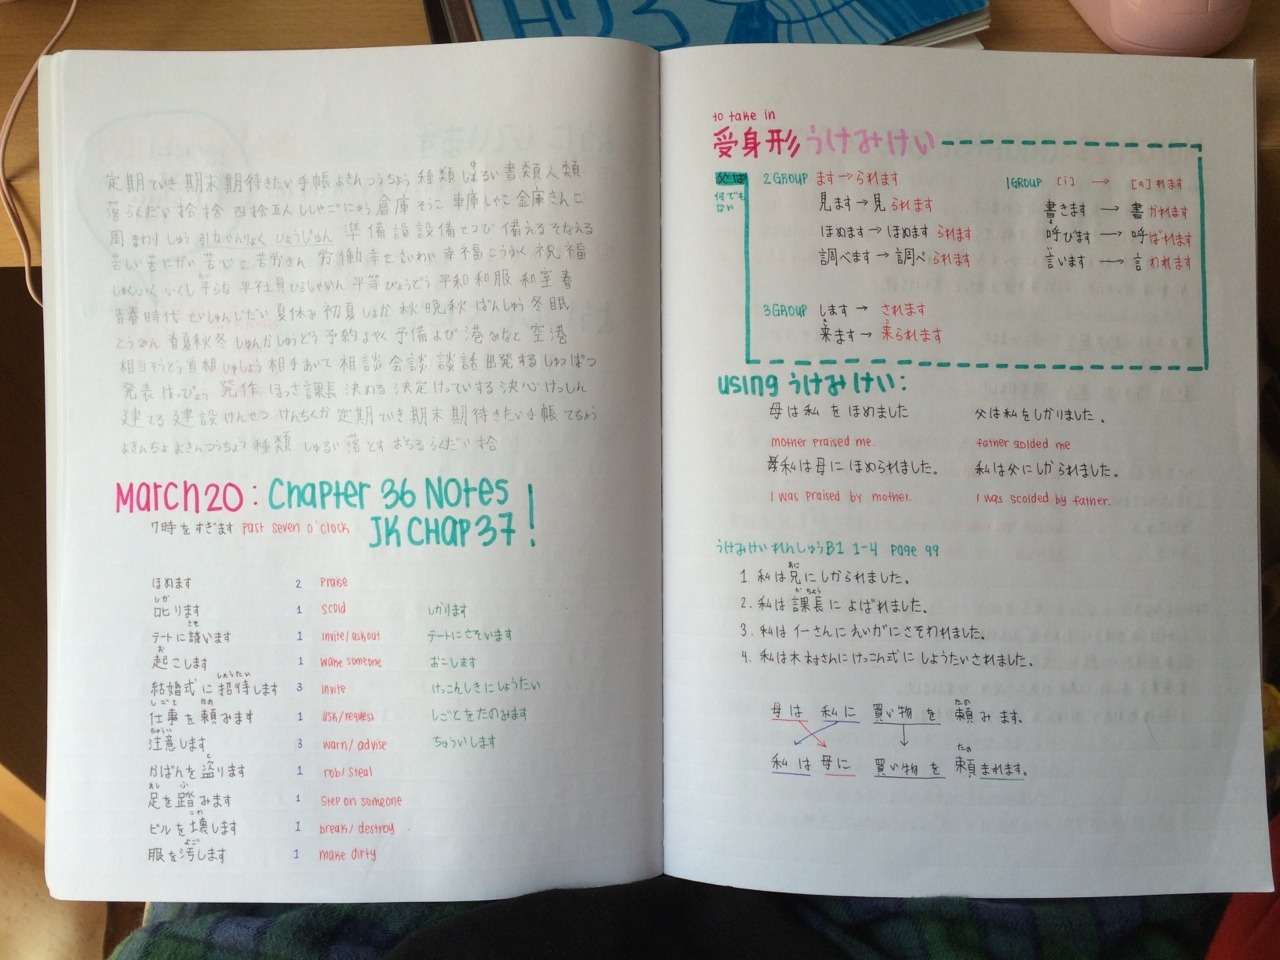 定期ていき 期末 期待きたい 手帳 よきんつうちょう 種類 しゅるい 書類 人類
落 らくだい 拾 捨 四捨五入 ししゃごにゅう 倉庫 そうこ 車庫 しゃこ 金庫 きんこ
周 まわり しゅう 準備 設 設備 せつび 備える そなえる
苦しい 苦にがい 苦心 苦労さん 労働 幸せ さいわい 幸福 こうふく 祝福
しゅくふく ふくし 平らな 平社員 ひらしゃいん 平等 びょうどう 平和 和服 和室 春
青春時代 せいしゅんじだい 夏休み 初夏 しょか 秋 晩秋 ばんしゅう 冬眠
とうみん 春夏秋冬 しゅんかしゅうとう 予約 よやく 予備 よび 港 みなと 空港
相当 そうとう 首相 しゅしょう 相手 あいて 相談 会談 談話 出発する しゅっぱつ
発表 はっぴょう 発作 ほっさ 課長 決める 決定 けっていする 決心 けっしん
建てる 建設 けんせつ けんちくか 定期 ていき 期末 期待 きたい 手帳 てちょう
よきんちょ よきんつうちょう 種類 しゅるい 落とす おちる らくだい 拾
March 20: Chapter 36 Notes
JK CHAP 37!
7時をすぎます past seven o'clock
ほめます 2 Praise
しか
叱ります 1 scold しかります
テートに誘います 1 invite/ask out テートにさそいます
お
起こします 1 wake someone おこします
しょうたい
結婚式に招待します 3 invite けっこんしきにしょうたい
しごと たの
仕事を頼みます 1 ask/request しごとをたのみます
ちゅうい
注意します 3 warn/advise ちゅういします
かばんを盗ります 1 rob/steal
あし ふ
足を踏みます 1 step on someone
こわ
ビルを壊します 1 break/destroy
よご
服を汚します 1 make dirty
to take in
受身形 うけみけい
何でも
ない
2GROUP ます→られます
見ます→見られます
ほめます→ほめますられます
調べます→調べられます
3GROUP します→されます
来ます→来られます
1GROUP [i] → [a]れます
書きます→書かれます
呼びます→呼ばれます
言います→言われます
using うけみけい:
母は私をほめました 父は私をしかりました。
mother praised me. father scolded me
私は母にほめられました。 私は父にしかられました。
I was praised by mother. I was scolded by father.
うけみけい れんしゅうB1 1-4 page 99
あに
1 私は兄にしかられました。
かちょう
2. 私は課長によばれました。
3. 私はイーさんにえいがにさそわれました。
4. 私は木村さんにけっこん式にしょうたいされました。
たの
母は 私に 買い物を 頼みます。
たの
私は 母に 買い物を 頼まれます。